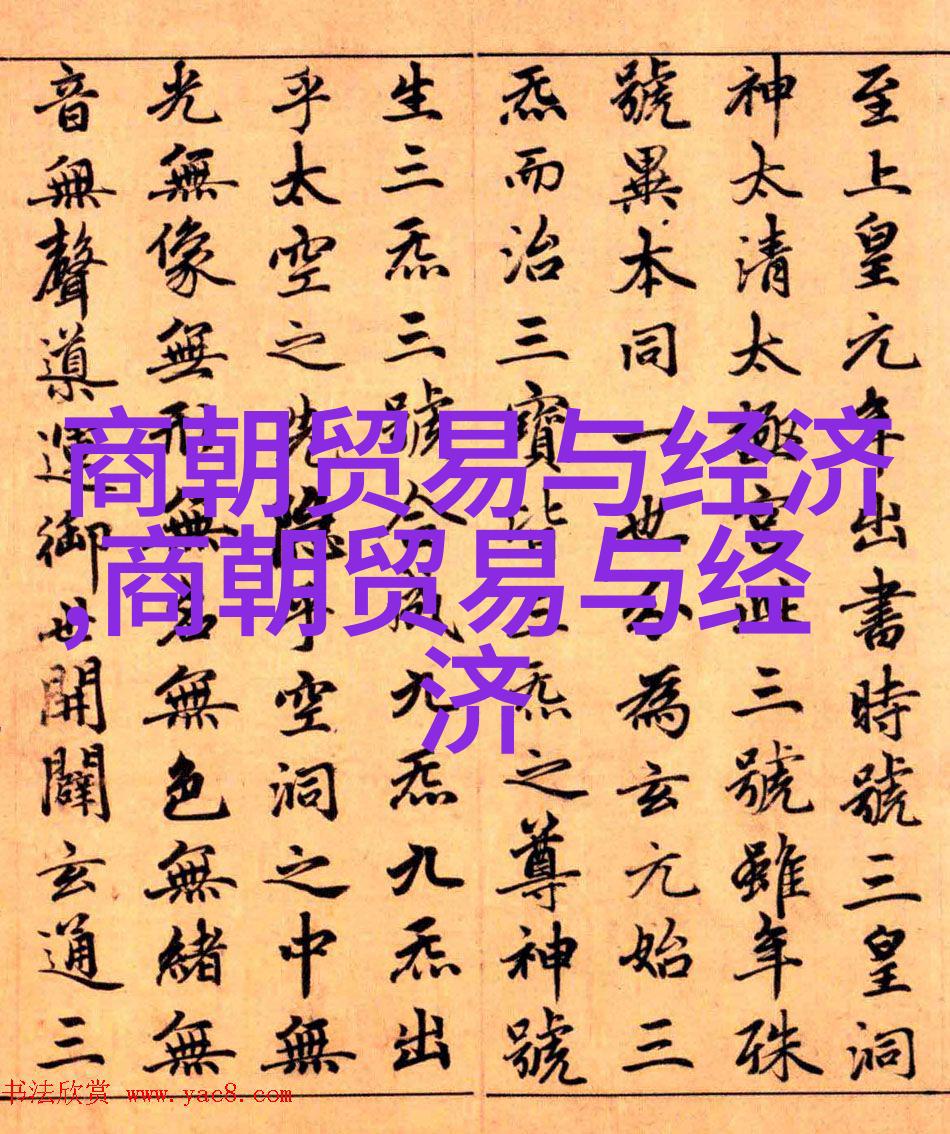 至上皇元年出書時號三皇洞
神太清太極宮此三號雖年殊
號異本同一也分為玄元始三
炁而治三寶皆三炁之尊神號
生三炁三號合成九炁九炁出
乎太空之先隱乎空洞之中無
光無像無形無名無色無緒無
音無聲導運御世開闢玄通三
商朝贸易与经济
,商朝贸易与经
济
书法欣赏 www.yac8.com